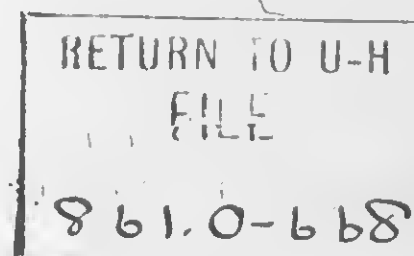 RETURN TO U-H
FILE
861.0-668